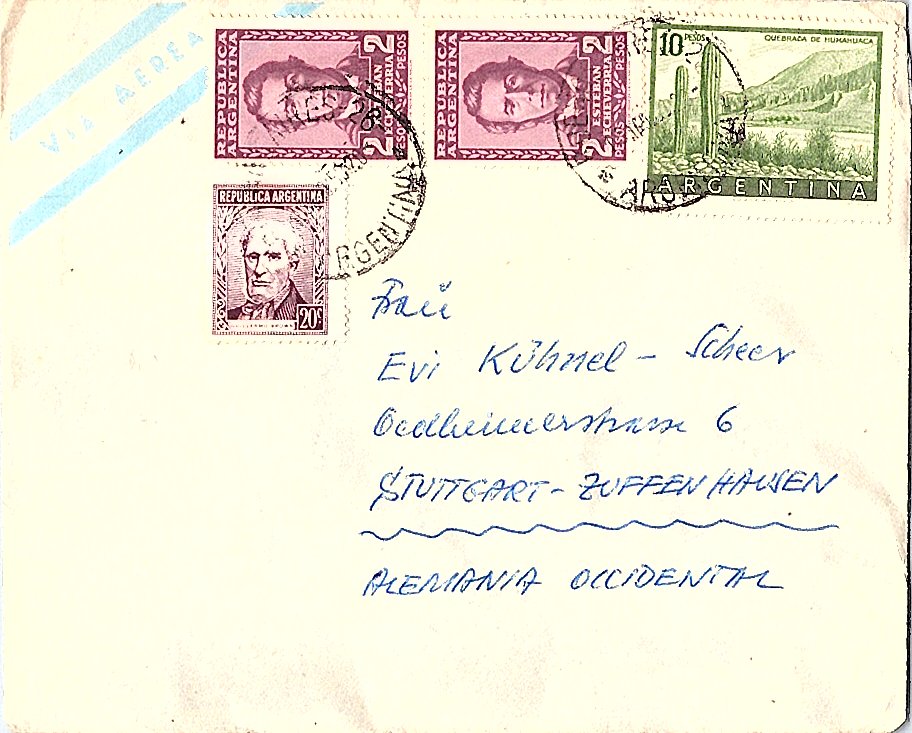 VIA AEREA
REPUBLICA
ARGENTINA
2
PESOS
ESTEBAN
ECHEVERRIA
2
PESOS
REPUBLICA
ARGENTINA
2
PESOS
ESTEBAN
ECHEVERRIA
2
PESOS
10 PESOS
QUEBRADA DE HUMAHUACA
ARGENTINA
REPUBLICA ARGENTINA
GUILLERMO BROWN
20c
ARGENTINA
Frau
Evi Kühnel - Scheer
6
STUTTGART - ZUFFENHAUSEN
ALEMANIA OCCIDENTAL